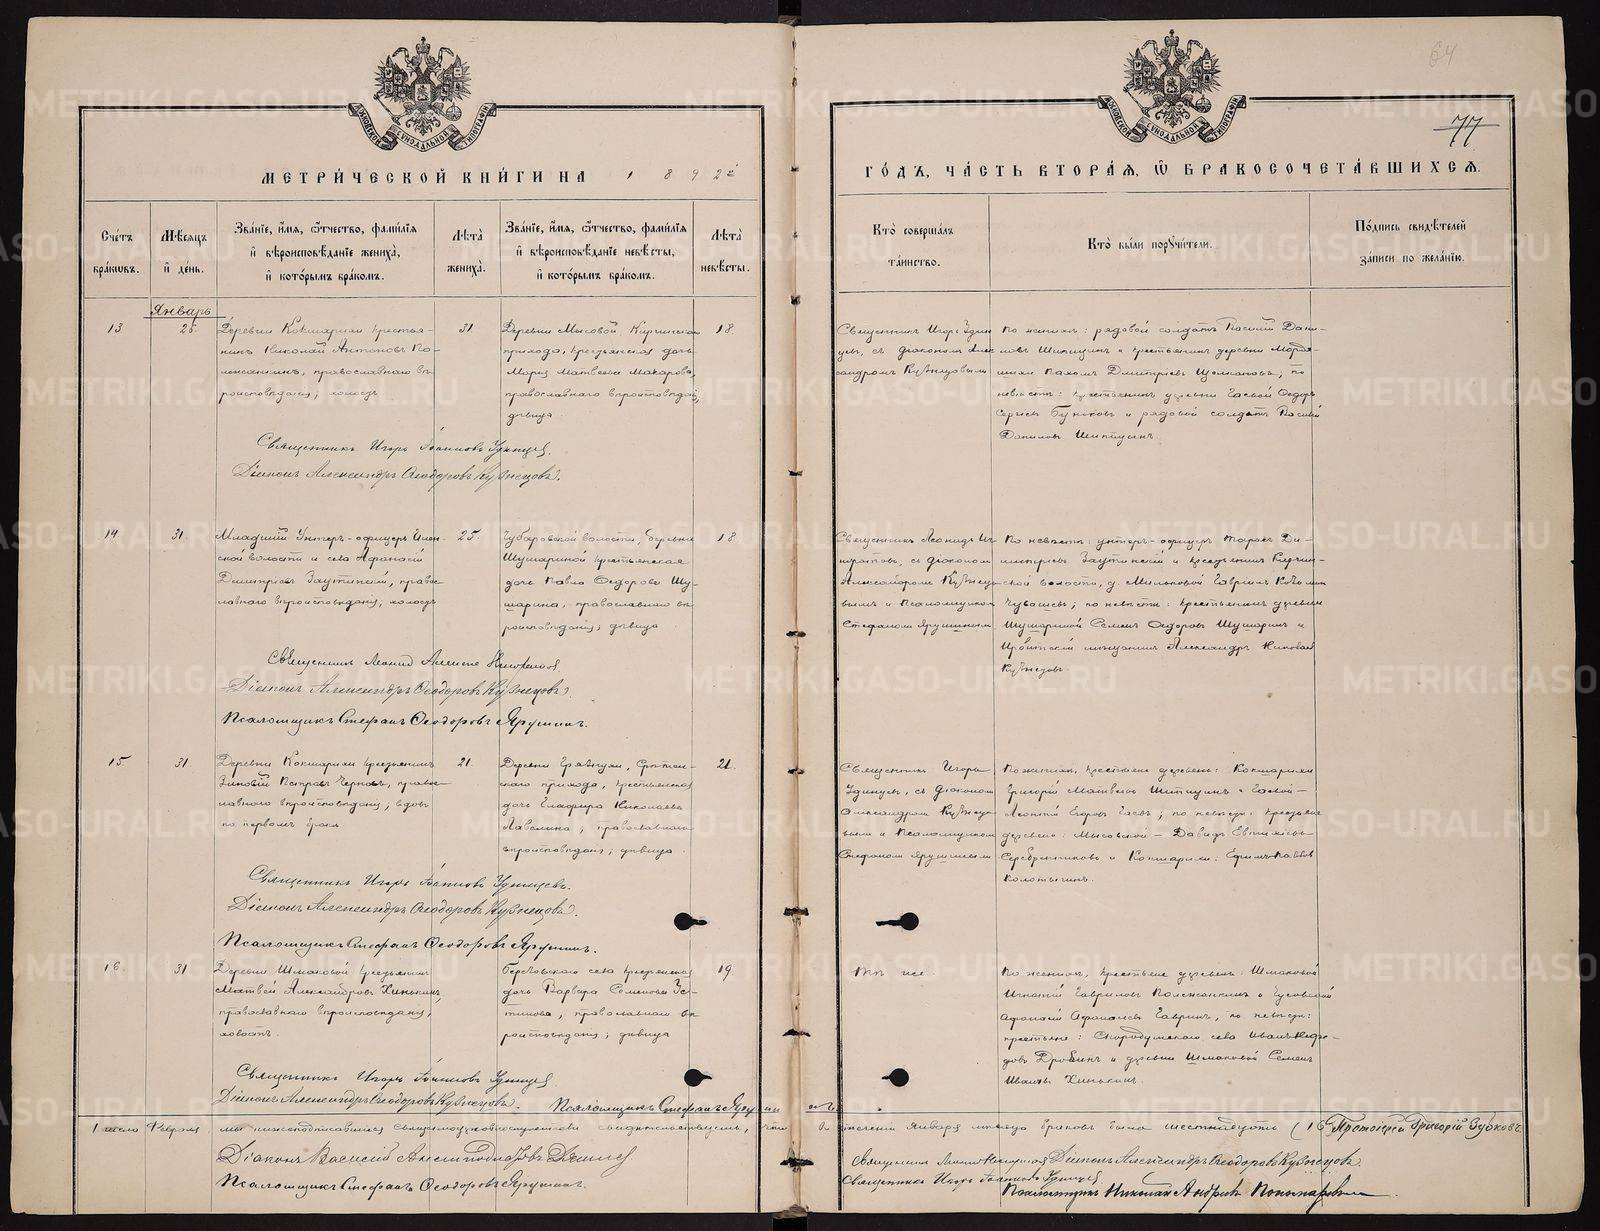 64
77
МОСКОВСКОЙ СѴНОДАЛЬНОЙ ТИПОГРАФІИ
МОСКОВСКОЙ СѴНОДАЛЬНОЙ ТИПОГРАФІИ
МЕТРИ́ЧЕСКОЙ КНИ́ГИ НА 1892й
ГО́ДЪ, ЧА́СТЬ ВТОРА́Я, Ѡ БРАКОСОЧЕТА́ВШИХСЯ.
Сче́тъ бра́кѡвъ.
Мѣ́сяцъ и҆ де́нь.
Зва́нїе, и҆́мя, ѻ҆́тчество, фами́лїя и҆ вѣроисповѣ́данїе жениха̀, и҆ кото́рымъ бра́комъ.
Лѣ́та жениха̀.
Зва́нїе, и҆́мя, ѻ҆́тчество, фами́лїя и҆ вѣроисповѣ́данїе невѣ́сты, и҆ кото́рымъ бра́комъ.
Лѣ́та невѣ́сты.
Кто̀ соверша́лъ та́инство.
Кто̀ бы́ли порꙋчи́тели.
По́дпись свидѣ́телей за́писи по жела́нїю.
Январь
13
25.
Деревни Кокшарихи крестья-
нинъ Николай Антоновъ По-
православнаго вѣ-
роисповѣданія, холостъ
31.
Деревни Мысовой
прихода, крестьянская дочь
Марія Матвѣева Макарова,
православнаго вѣроисповѣданія,
дѣвица
18.
Священникъ Игорь Удин-
цевъ, съ діакономъ Алек-
сандромъ Кузнецовымъ
По женихѣ: рядовой солдатъ Василій Дани-
ловъ Шипицинъ и крестьянинъ деревни
Пахомъ Дмитріевъ по
невѣстѣ: крестьянинъ Ѳедоръ
Сергѣевъ и рядовой солдатъ Василій
Даниловъ Шипицинъ
Священникъ Игорь Іоанновъ Удинцевъ.
Діаконъ Александръ Ѳеодоровъ Кузнецовъ.
14.
31.
Младшій унтеръ-офицеръ
ской волости и села Аѳанасій
Дмитріевъ Заутинскій, право-
славнаго вѣроисповѣданія; холостъ
25.
волости, деревни
Шушариной крестьянская
дочь Павла Ѳедорова Шу-
шарина, православнаго вѣ-
роисповѣданія; дѣвица
18
Священникъ Леонидъ
съ діакономъ
Александромъ Кузнецо-
вымъ и псаломщикомъ
Стефаномъ Ярушинымъ
унтеръ-офицеръ Тарасъ Ди-
митріевъ Заутинскій и крестьянинъ
ской волости, д. Мильковой Гавріилъ
Чувашевъ; по невѣстѣ: крестьянинъ деревни
Шушариной Семенъ Ѳедоровъ Шушаринъ и
Ирбитскій мѣщанинъ Александръ
Кузнецовъ
Священникъ Леонидъ
Діаконъ Александръ Ѳеодоровъ Кузнецовъ.
Псаломщикъ Стефанъ Ѳеодоровъ Ярушинъ.
15.
31.
Деревни Кокшарихи крестьянинъ
Зиновій Петровъ Черновъ, право-
славнаго вѣроисповѣданія, вдовъ
по первомъ бракѣ
21.
Деревни Грязнухи,
скаго прихода, крестьянская
дочь Глафира Николаева
православнаго
вѣроисповѣданія; дѣвица
21.
Священникъ Игорь
Удинцевъ, съ діакономъ
Александромъ Кузнецо-
вымъ и псаломщикомъ
Стефаномъ Ярушинымъ
По женихѣ, крестьяне деревень: Кокшарихи
Григорій Матвѣевъ Шипицинъ и Гаевой –
Леонтій Егоровъ Гаевъ; по невѣстѣ: крестьяне
деревень: Мысовской – Давидъ Евтихіевъ
Серебренниковъ и Кокшарихи:
Священникъ Игорь Іоанновъ Удинцевъ.
Діаконъ Александръ Ѳеодоровъ Кузнецовъ.
Псаломщикъ Стефанъ Ѳеодоровъ Ярушинъ.
16.
31
Деревни Шмаковой крестьянинъ
Матвѣй Александровъ Хинькинъ,
православнаго вѣроисповѣданія,
холостъ.
села крестьянская
дочь Варвара Семенова Ус-
тинова, православнаго вѣ-
роисповѣданія; дѣвица
19.
Тѣ же.
По женихѣ, крестьяне деревень: Шмаковой
Игнатій Гавриловъ и
Аѳанасій Гавринъ, по невѣстѣ:
крестьяне: Скородумскаго села Иванъ
довъ и деревни Шмаковой Семенъ
Ивановъ Хинькинъ.
Священникъ Игорь Іоанновъ Удинцевъ
Діаконъ Александръ Ѳеодоровъ Кузнецовъ. Псаломщикъ Стефанъ Ярушинъ
1 число Февраля мы нижеподписавшіеся священноцерковнослужители свидѣтельствуемъ, что въ теченіи января мѣсяца браковъ было шестнадцать (16) Протоіерей Григорій Зубковъ
Діаконъ Василій
Псаломщикъ Стефанъ Ѳеодоровъ Ярушинъ.
Священникъ Леонидъ Діаконъ Александръ Ѳеодоровъ Кузнецовъ.
Священникъ Игорь Іоанновъ Удинцевъ
Псаломщикъ Николай Андреевъ Пономаревъ
METRIKI.GASO-URAL.RU